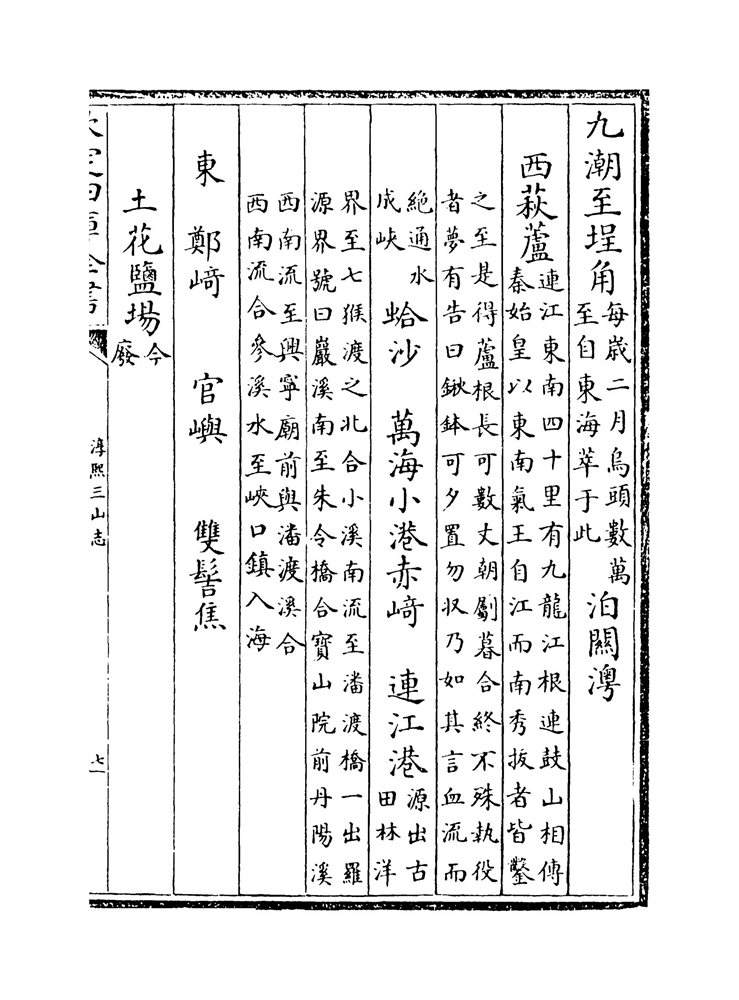 九潮至埕角
每歳二月烏頭數萬
至自東海萃于此
泊闗澚
西萩蘆
連江東南四十里有九龍江根連鼓山相傳
秦始皇以東南氣王自江而南秀拔者皆鑿
之至是得蘆根長可數丈朝劚暮合終不殊執役
者夢有告曰鍬鉢可夕置勿収乃如其言血流而
絶通水
成峽
蛤沙 萬海小港赤﨑 連江港
源出古
田林洋
界至七猴渡之北合小溪南流至潘渡橋一出羅
源界號曰巖溪南至朱令橋合寶山院前丹陽溪
西南流至興寧廟前與潘渡溪合
西南流合參溪水至峽口鎮入海
東 鄭﨑 官嶼 雙髻焦
土花鹽場
今
廢
欽定四庫全書
淳熙三山志